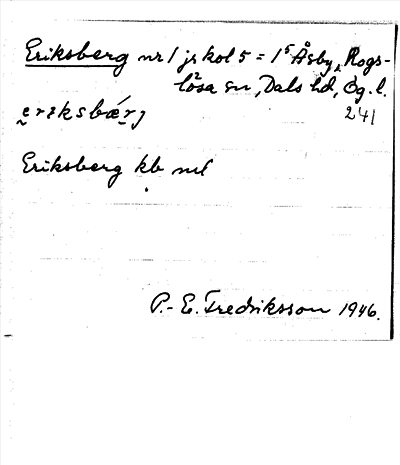 Eriksberg nr 1 jr kol 5 = 1⁵ Åsby, Rogs-
lösa sn, Dals hd, Ög. l.
eriksbærj 241
Eriksberg kb nr 1
P.-E. Fredriksson 1946.